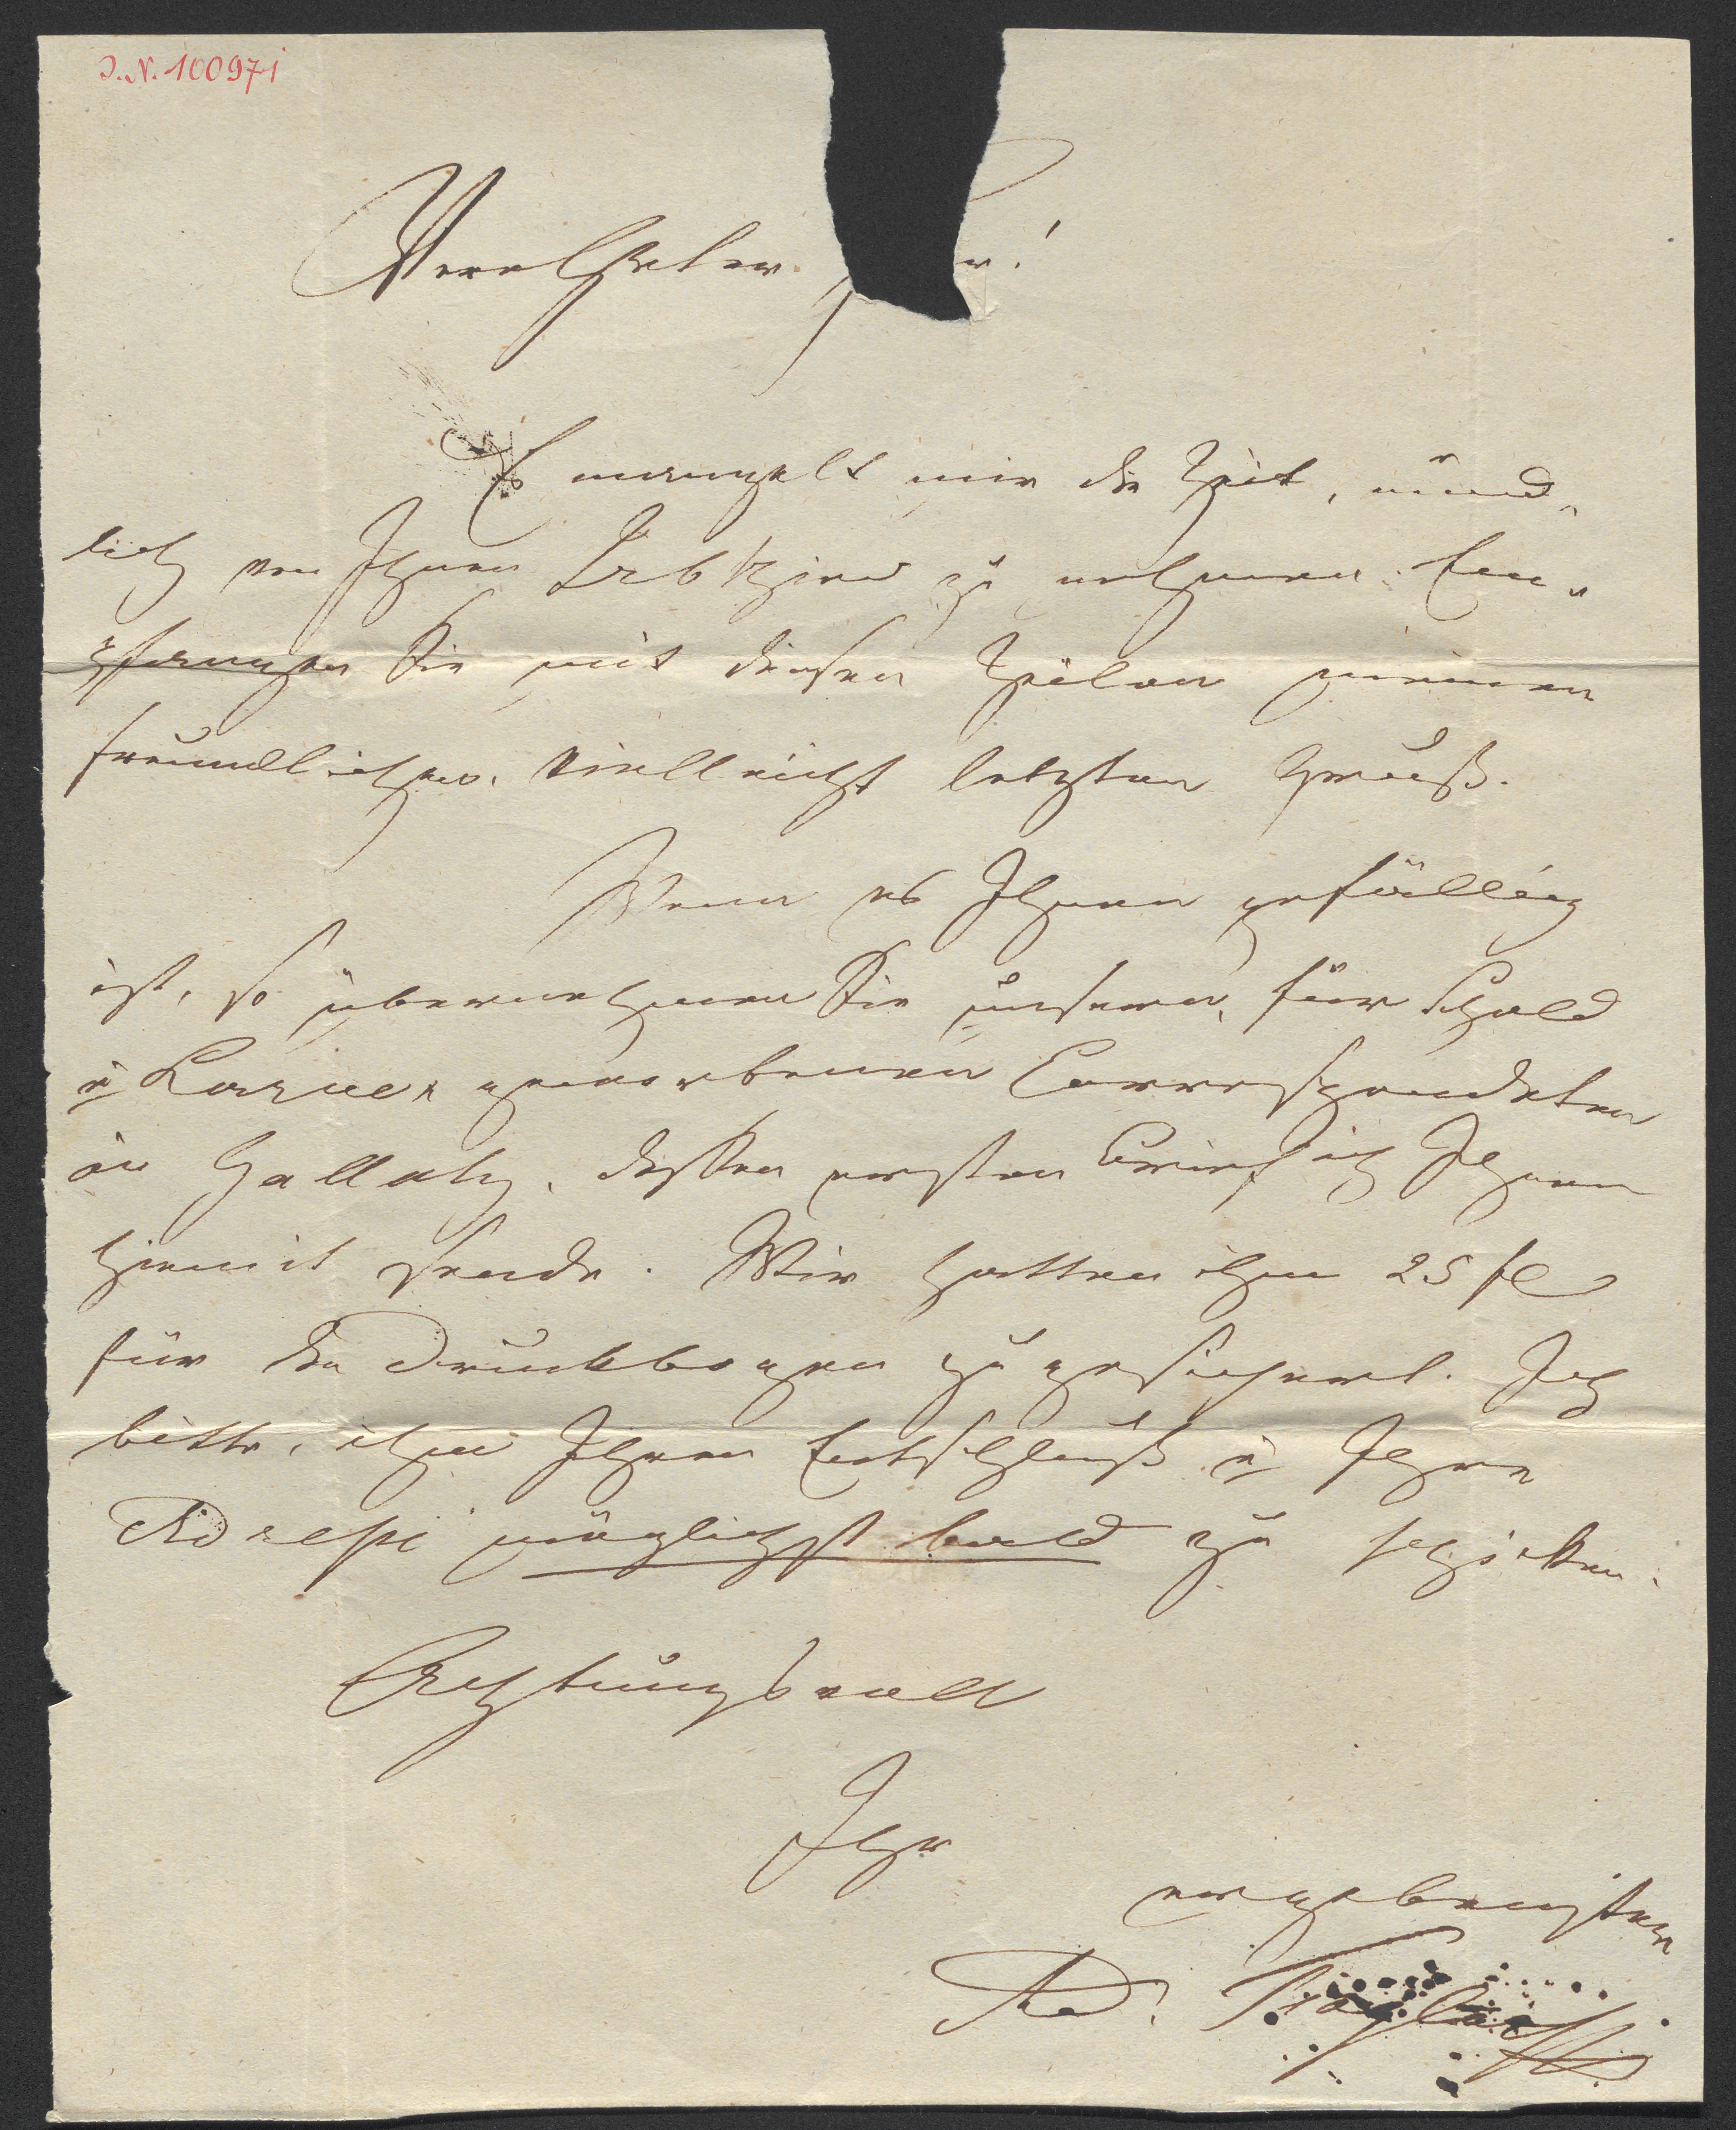 I. N. 100971
Verehrter H r!
Es mangelt mir die Zeit, münd-
lich von Ihnen Lebewohl zu nehmen. Em-
pfangen Sie mit diesen Zeilen meinen
freundlichen, vielleicht letzten Gruß.
Wenn es Ihnen gefällig
ist, so übernehmen Sie unsern, für
u geworbenen Correspondenten
in Gallatz, dessen ersten Brief ich Ihnen
hiemit sende. Wir hatten ihm 25 fl
für den Druckbogen zugesichert. Ich
bitte, ihm Ihren Entschluß u Ihre
Adresse möglichst bald zu schicken.
Achtungsvoll
Ihr
ergebenster